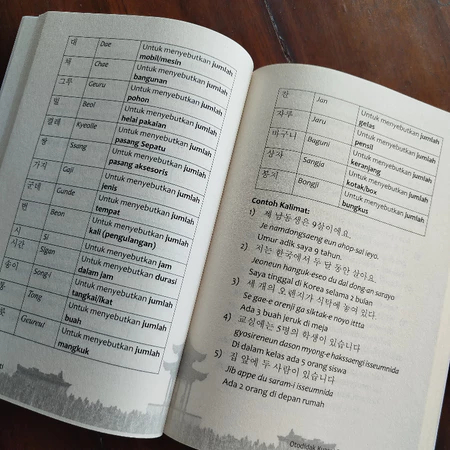 대 Dae Untuk menyebutkan jumlah
mobil/mesin
채 Chae Untuk menyebutkan jumlah
bangunan
그루 Geuru Untuk menyebutkan jumlah
pohon
벌 Beol Untuk menyebutkan jumlah
helai pakaian
켤레 Kyeolle Untuk menyebutkan jumlah
pasang Sepatu
쌍 Ssang Untuk menyebutkan jumlah
pasang aksesoris
가지 Gaji Untuk menyebutkan jumlah
jenis
군데 Gunde Untuk menyebutkan jumlah
tempat
번 Beon Untuk menyebutkan jumlah
kali (pengulangan)
시 Si Untuk menyebutkan jam
시간 Sigan Untuk menyebutkan durasi
dalam jam
송이 Song-i Untuk menyebutkan jumlah
tangkai/ikat
Tong Untuk menyebutkan jumlah
buah
Untuk menyebutkan jumlah
mangkuk
잔 Jan Untuk menyebutkan jumlah
gelas
자루 Jaru Untuk menyebutkan jumlah
pensil
바구니 Baguni Untuk menyebutkan jumlah
keranjang
상자 Sangja Untuk menyebutkan jumlah
kotak/box
봉지 Bongji Untuk menyebutkan jumlah
bungkus
Contoh Kalimat:
1) 제 남동생은 9살이에요.
Je namdongsaeng eun ahop-sal ieyo.
Umur adik saya 9 tahun.
2) 저는 한국에서 두 달 동안 살아요.
Jeoneun hanguk-eseo du dal dongan sarayo
Saya tinggal di Korea selama 2 bulan
3) 세 개의 오렌지가 식탁에 놓여 있다
Se gae-e orengji ga siktak-e noyo ittta
Ada 3 buah jeruk di meja
4) 교실에는 5명의 학생이 있습니다
gyosireneun dason myong-e hakssaengi isseumnida
Di dalam kelas ada 5 orang siswa
5) 집 앞에 두 사람이 있습니다
Jib appe du saram-i isseumnida
Ada 2 orang di depan rumah
Otodidak